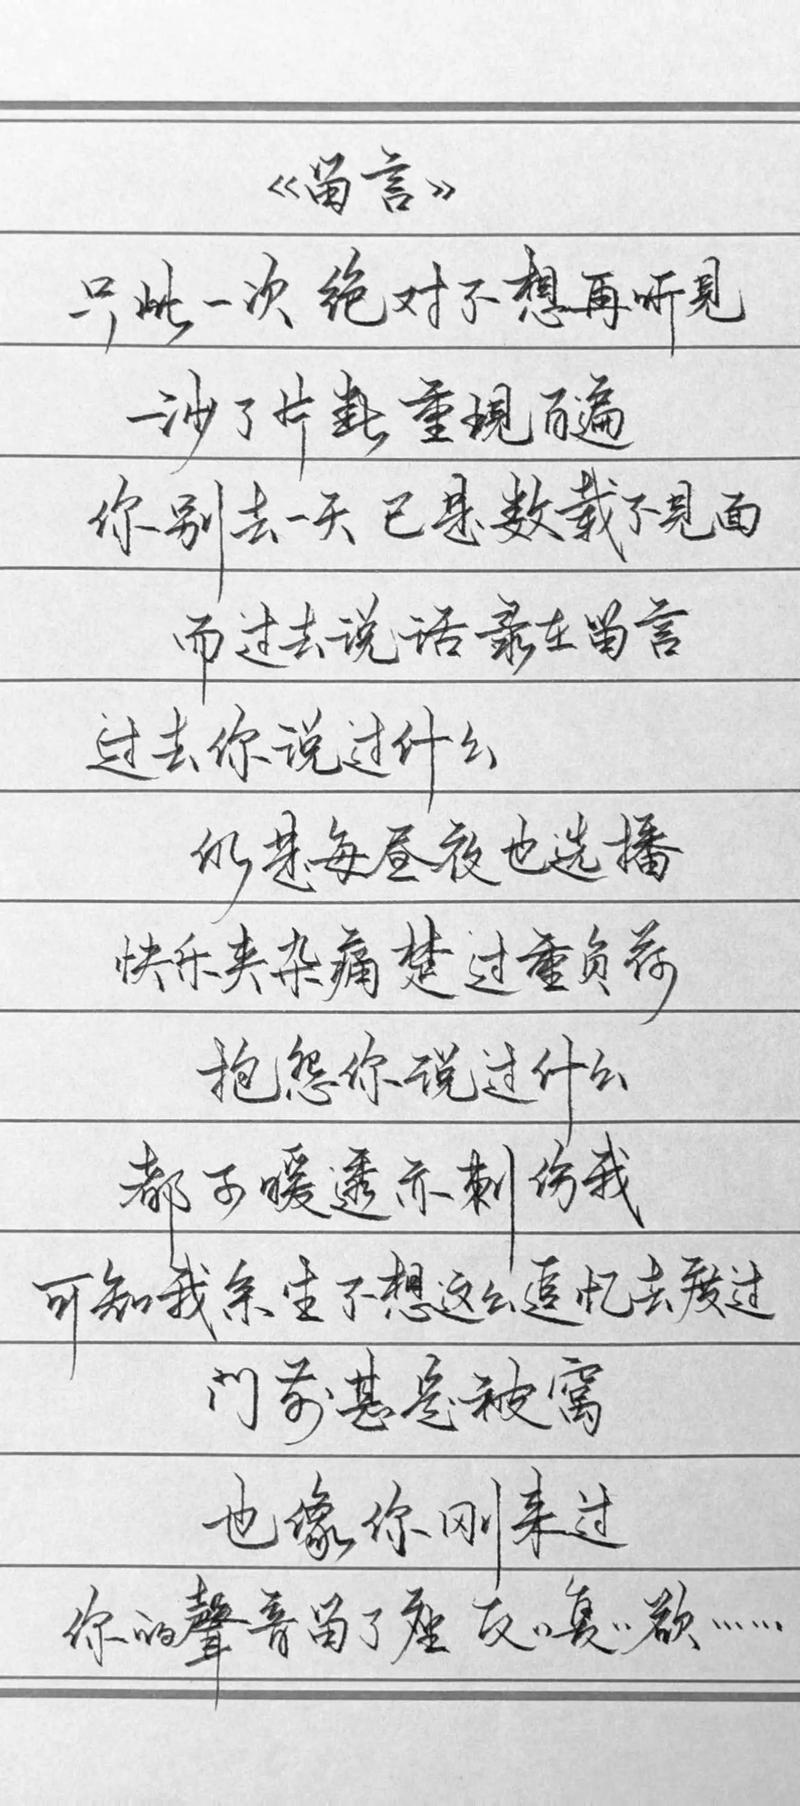 《留言》
只此一次 绝对不想再听见
一沙了片刻 重现百遍
你别去一天 已是数载不见面
而过去说话 录在留言
过去你说过什么
仍是每昼夜也选播
快乐夹杂痛楚过重负荷
抱怨你说过什么
都可暖透亦刺伤我
可知我余生不想这么追忆去度过
门前甚至被窝
也像你刚来过
你的聲音留了座